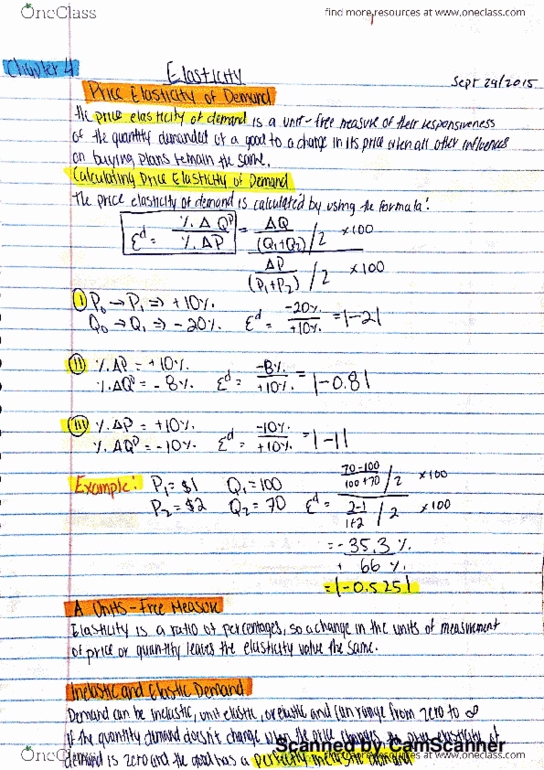 OneClass
find more resources at www.oneclass.com
Chapter 4
Elasticity
Sept 29/2015
Price Elasticity of Demand
The price elasticity of demand is a unit-free measure of their responsiveness
of the quantity demanded of a good to a change in its price when all other influences
on buying plans remain the same.
Calculating Price Elasticity of Demand
The price elasticity of demand is calculated by using the formula:
Ɛᵈ = %ΔQᴰ / %ΔP = ΔQ / (Q₁+Q₂)/2 ×100
ΔP / (P₁+P₂)/2 ×100
i) P₀ → P₁ ⇒ +10%
Q₀ → Q₁ ⇒ -20% Ɛᵈ = -20% / +10% = |-2|
ii) %ΔP = +10%
%ΔQᴰ = -8% Ɛᵈ = -8% / +10% = |-0.8|
iii) %ΔP = +10%
%ΔQᴰ = -10% Ɛᵈ = -10% / +10% = |-1|
Example: P₁ = $1 Q₁ = 100
P₂ = $2 Q₂ = 70 Ɛᵈ = 70-100 / 100+70 / 2 ×100
2-1 / 1+2 / 2 ×100
= -35.3 %
+ 66 %
= |-0.525|
A Units-Free Measure
Elasticity is a ratio of percentages, so a change in the units of measurement
of price or quantity leaves the elasticity value the same.
Inelastic and Elastic Demand
Demand can be inelastic, unit elastic, or elastic and can range from zero to ∞
If the quantity demand doesn't change when the price changes the price elasticity of
demand is zero and the good has a perfectly inelastic demand
Scanned by CamScanner
OneClass
find more resources at www.oneclass.com